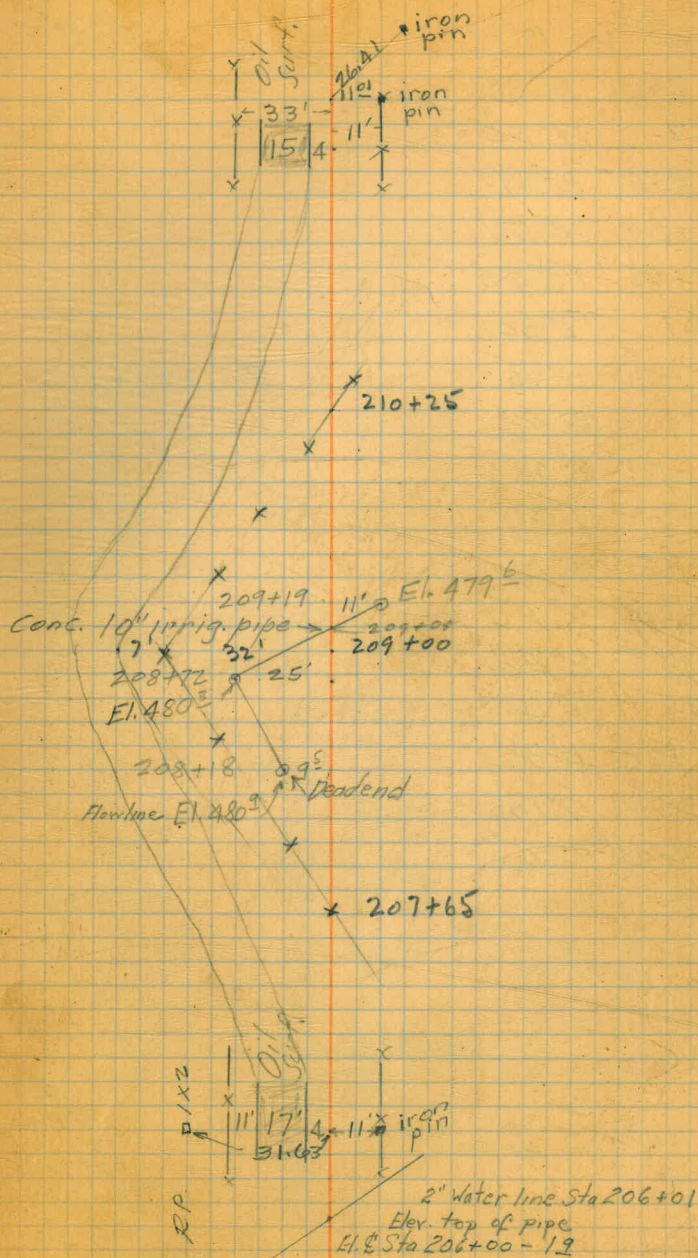 iron
pin
Oil
Surf.
26.41
11 01
iron
pin
33'
11'
15'
4
210+25
El. 479 6
209+19
11'
Conc. 10" irrig. pipe
209+00
7'
32'
208+72
25'
El. 480 3
208+18
9 5
Deadend
Flowline El. 480 9
207+65
Oil
Surf.
1x2
11'
17'
4
11'
iron
pin
31.63
R.P.
2" Water line Sta 206+01
Elev. top of pipe
El. ℄ Sta 206+00 - 19